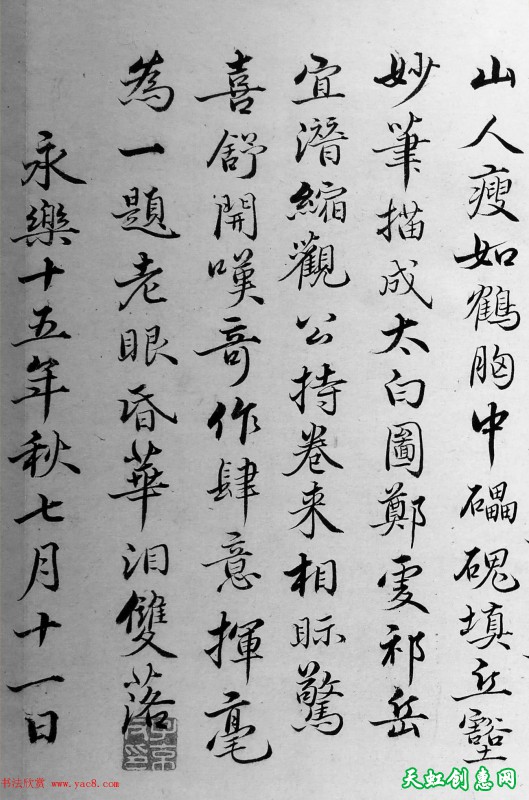 山人瘦如鶴胸中礧磈填丘壑
妙筆描成太白圖鄭虔祁岳
宜潛縮觀公持卷来相眎驚
喜舒開嘆奇作肆意揮毫
為一題老眼昏華泪雙落
永樂十五年秋七月十一日
书法欣赏 www.yac8.com
天虹创惠网